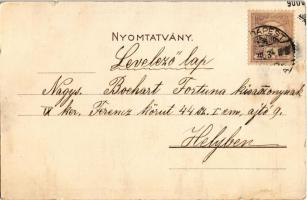 NYOMTATVÁNY.
Levelező lap
Nagys. Bochart Fortuna kisasszonynak
IX ker. Ferencz körut 44 sz. I em, ajtó 9.
Helyben